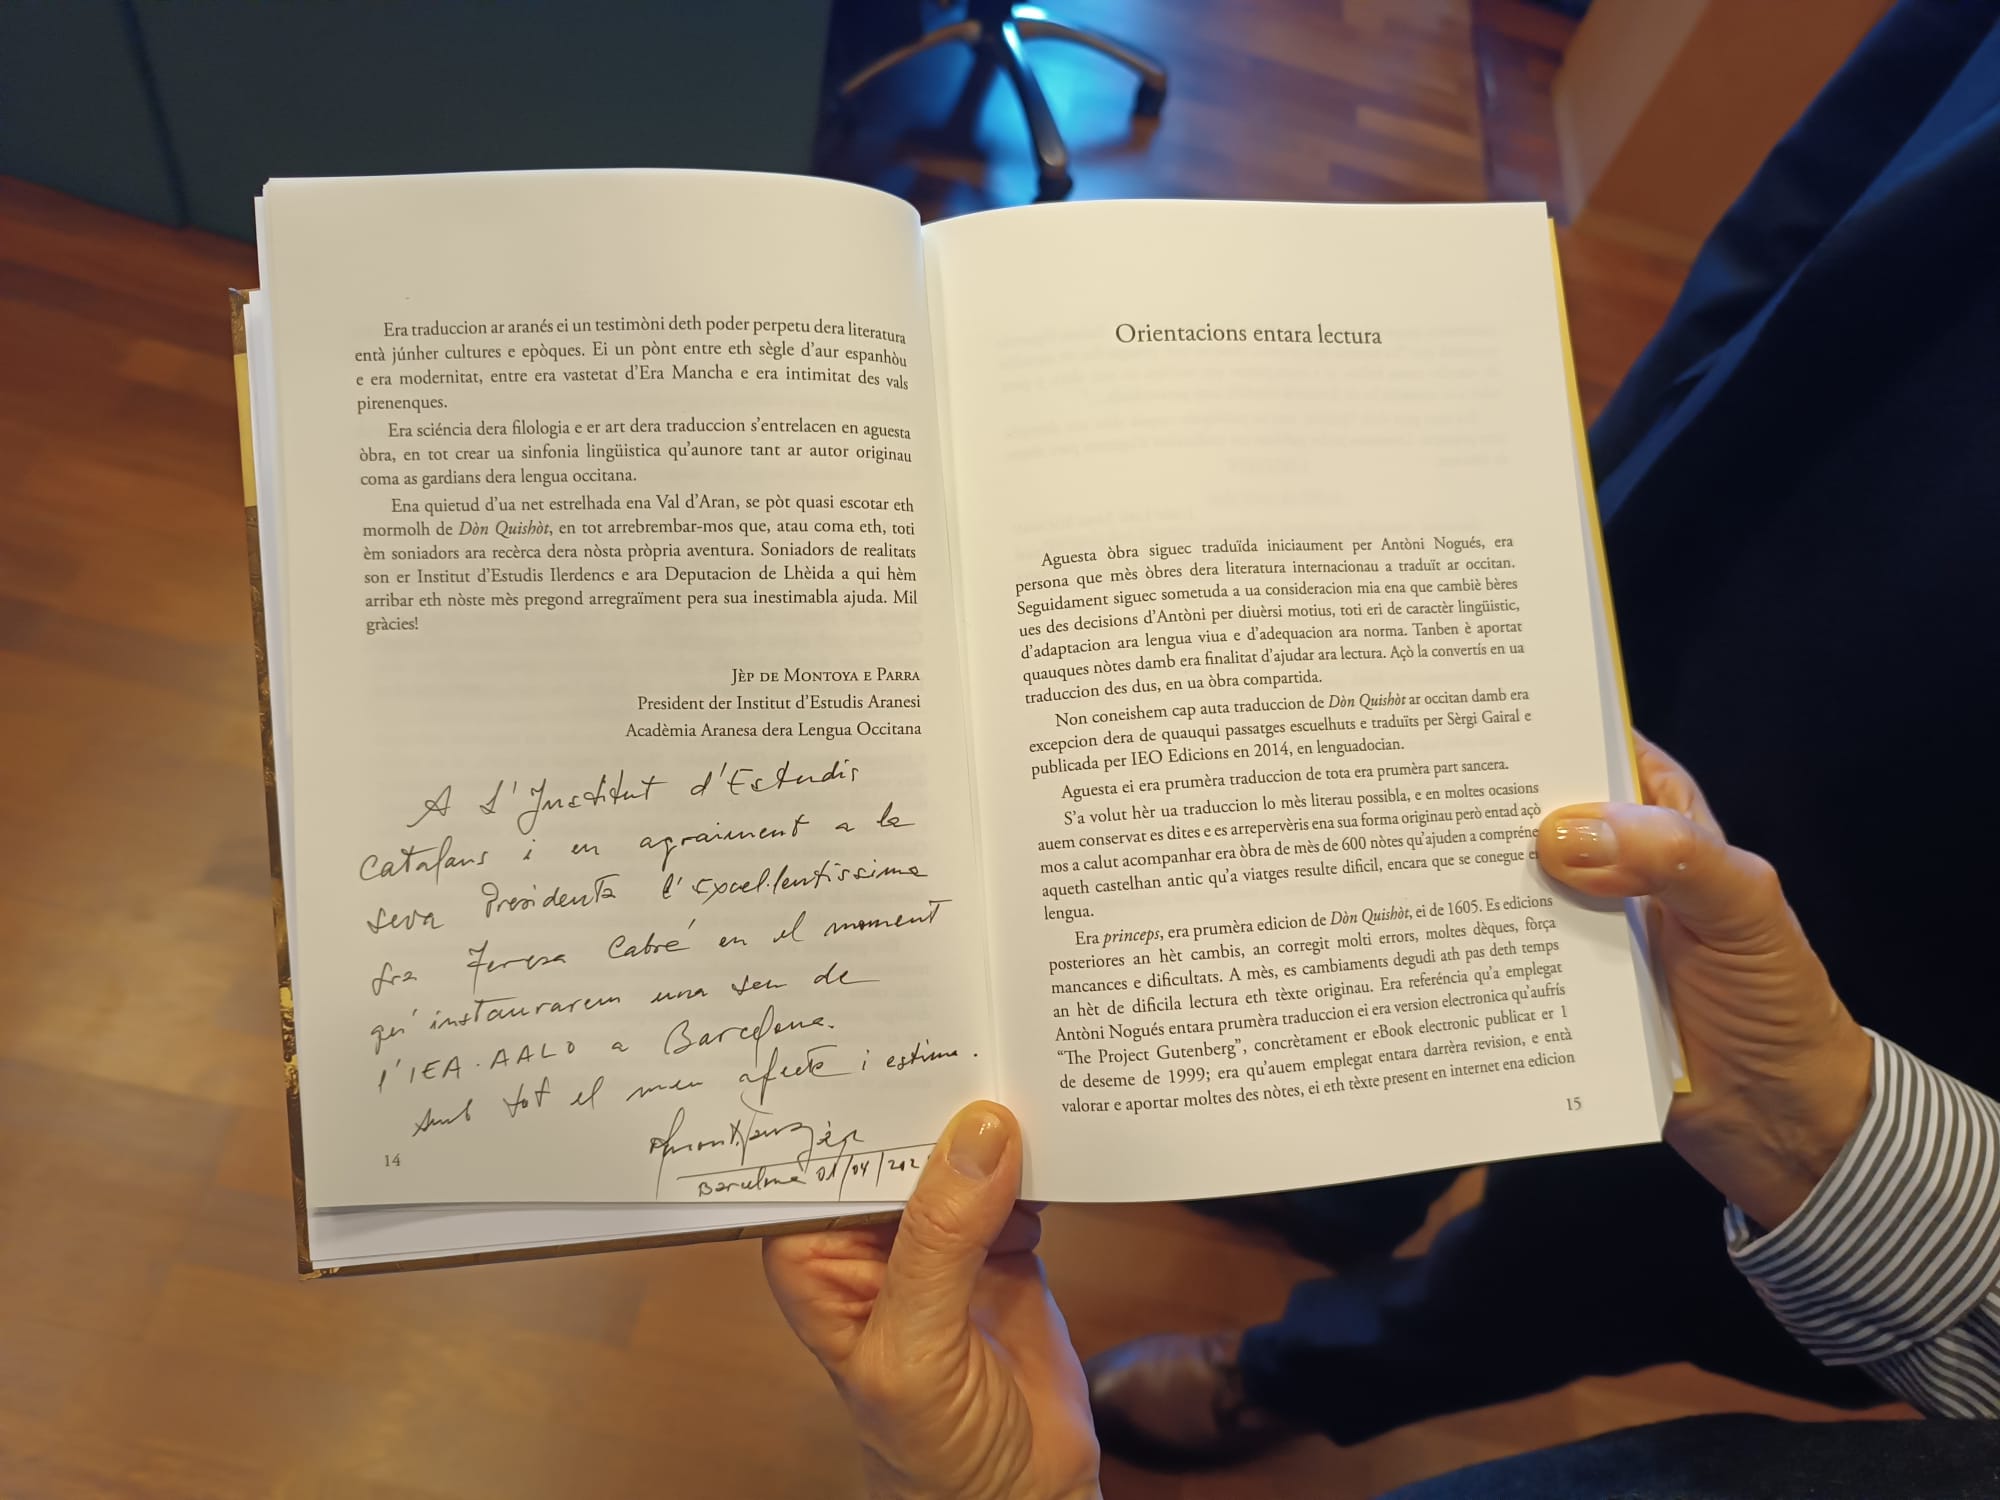 Era traduccion ar aranés ei un testimòni deth poder perpetu dera literatura
entà júnher cultures e epòques. Ei un pònt entre eth sègle d'aur espanhòu
e era modernitat, entre era vastetat d'Era Mancha e era intimitat des vals
pirenenques.
Era sciéncia dera filologia e er art dera traduccion s'entrelacen en aguesta
òbra, en tot crear ua sinfonia lingüistica qu'aunore tant ar autor originau
coma as gardians dera lengua occitana.
Ena quietud d'ua net estrelhada ena Val d'Aran, se pòt quasi escotar eth
mormolh de Dòn Quishòt, en tot arrebrembar-mos que, atau coma eth, toti
èm soniadors ara recèrca dera nòsta pròpria aventura. Soniadors de realitats
son er Institut d'Estudis Ilerdencs e ara Deputacion de Lhèida a qui hèm
arribar eth nòste mès pregond arregraïment pera sua inestimabla ajuda. Mil
gràcies!
Jèp de Montoya e Parra
President der Institut d'Estudis Aranesi
Acadèmia Aranesa dera Lengua Occitana
A l'Institut d'Estudis
Catalans i en agraiment a la
seva Presidenta l'Excel·lentissima
Sra Teresa Cabré en el moment
qu'instaurarem una seu de
l'IEA·AALO a Barcelona.
Amb tot el meu afecte i estima.
Barcelona 01/04/202
14
Orientacions entara lectura
Aguesta òbra siguec traduïda iniciaument per Antòni Nogués, era
persona que mès òbres dera literatura internacionau a traduït ar occitan.
Seguidament siguec sometuda a ua consideracion mia ena que cambiè bères
ues des decisions d'Antòni per diuèrsi motius, toti eri de caractèr lingüistic,
d'adaptacion ara lengua viua e d'adequacion ara norma. Tanben è aportat
quauques nòtes damb era finalitat d'ajudar ara lectura. Açò la convertís en ua
traduccion des dus, en ua òbra compartida.
Non coneishem cap auta traduccion de Dòn Quishòt ar occitan damb era
excepcion dera de quauqui passatges escuelhuts e traduïts per Sèrgi Gairal e
publicada per IEO Edicions en 2014, en lenguadocian.
Aguesta ei era prumèra traduccion de tota era prumèra part sancera.
S'a volut hèr ua traduccion lo mès literau possibla, e en moltes ocasions
auem conservat es dites e es arrepervèris ena sua forma originau però entad açò
mos a calut acompanhar era òbra de mès de 600 nòtes qu'ajuden a compréne
aqueth castelhan antic qu'a viatges resulte dificil, encara que se conegue e
lengua.
Era princeps, era prumèra edicion de Dòn Quishòt, ei de 1605. Es edicions
posteriores an hèt cambis, an corregit molti errors, moltes dèques, fòrça
mancances e dificultats. A mès, es cambiaments degudi ath pas deth temps
an hèt de dificila lectura eth tèxte originau. Era referéncia qu'a emplegat
Antòni Nogués entara prumèra traduccion ei era version electronica qu'aufrís
"The Project Gutenberg", concrètament er eBook electronic publicat er 1
de deseme de 1999; era qu'auem emplegat entara darrèra revision, e entà
valorar e aportar moltes des nòtes, ei eth tèxte present en internet ena edicion
15